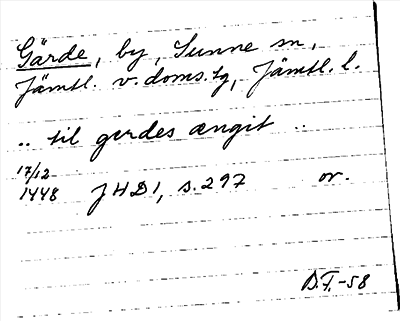 Gärde, by, Sunne sn,
Jämtl. v. doms.tg, Jämtl. l.
.. til gerdes ængit ..
17/12
1448 JHD 1, s. 297 or.
D.F.-58